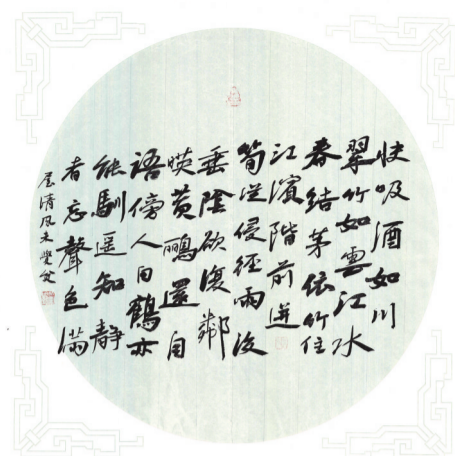 快吸酒如川
翠竹如雲江水
春結茅依竹住
江濱階前迸
筍從侵徑雨後
垂陰欲復鄰
暎黄鸝還自
語傍人白鶴亦
能馴遥知静
者忘聲色滿
屋清风未覺貧